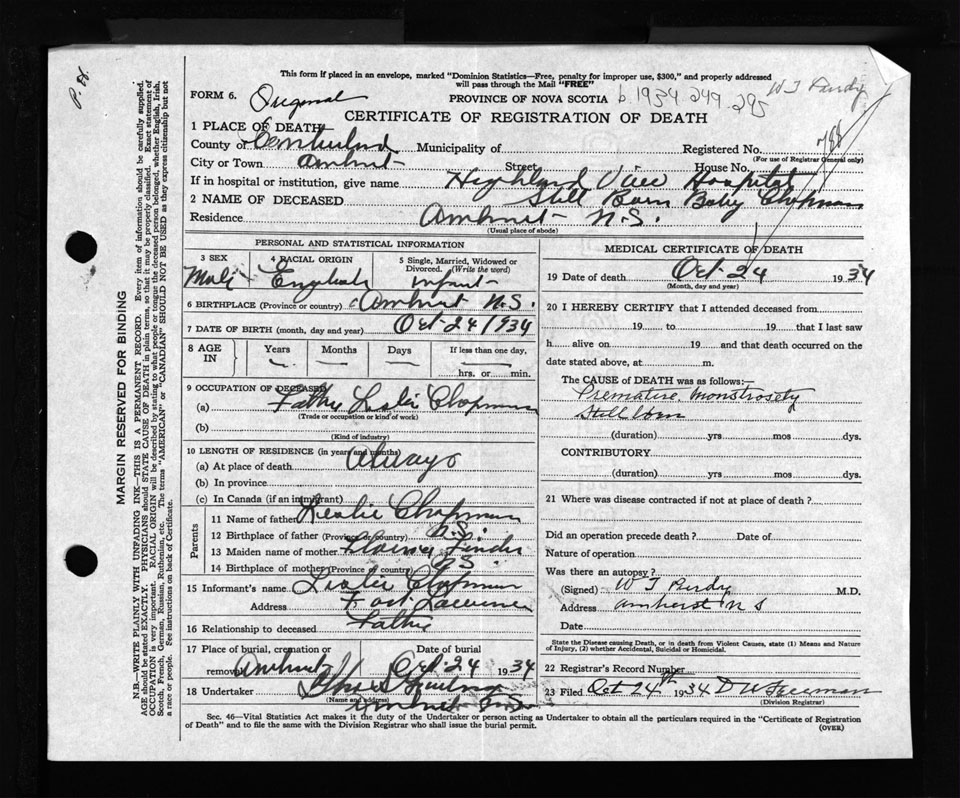 P. H.
This form if placed in an envelope, marked "Dominion Statistics—Free, penalty for improper use, $300," and properly addressed
will pass through the Mail "FREE"
FORM 6. Original PROVINCE OF NOVA SCOTIA b. 1934 249 295 W T Purdy
CERTIFICATE OF REGISTRATION OF DEATH
1 PLACE OF DEATH
County of Cumberland Municipality of Registered No.
(For use of Registrar General only)
City or Town Amherst Street House No.
If in hospital or institution, give name Highland View Hospital
2 NAME OF DECEASED Still Born Baby Chapman
Residence Amherst N.S.
(Usual place of abode)
PERSONAL AND STATISTICAL INFORMATION
3 SEX 4 RACIAL ORIGIN 5 Single, Married, Widowed or
Divorced. (Write the word)
Male English Infant
6 BIRTHPLACE (Province or country) Amherst N.S.
7 DATE OF BIRTH (month, day and year) Oct 24 1934
8 AGE IN Years Months Days If less than one day,
hrs. or min.
9 OCCUPATION OF DECEASED
(a) Father Leslie Chapman
(Trade or occupation or kind of work)
(b)
(Kind of industry)
10 LENGTH OF RESIDENCE (in years and months)
(a) At place of death Always
(b) In province
(c) In Canada (if an immigrant)
Parents
11 Name of father Leslie Chapman
12 Birthplace of father (Province or country) N.S.
13 Maiden name of mother
14 Birthplace of mother (Province or country) N.S.
15 Informant's name Leslie Chapman
Address Fort Lawrence
16 Relationship to deceased Father
17 Place of burial, cremation or Date of burial
removal Amherst Oct 24 1934
18 Undertaker
(Name and address)
Amherst
MEDICAL CERTIFICATE OF DEATH
19 Date of death Oct 24 1934
(Month, day and year)
20 I HEREBY CERTIFY that I attended deceased from
19 to 19 that I last saw
h alive on 19 and that death occurred on the
date stated above, at m.
The CAUSE of DEATH was as follows:—
Premature monstrosety
Still born
(duration) yrs mos dys.
CONTRIBUTORY
(duration) yrs mos dys.
21 Where was disease contracted if not at place of death?
Did an operation precede death? Date of
Nature of operation
Was there an autopsy?
(Signed) W T Purdy M.D.
Address Amherst N S
Date
State the Disease causing Death, or in death from Violent Causes, state (1) Means and Nature
of Injury, (2) whether Accidental, Suicidal or Homicidal.
22 Registrar's Record Number
23 Filed Oct 24th 1934 D W Freeman
(Division Registrar)
Sec. 46—Vital Statistics Act makes it the duty of the Undertaker or person acting as Undertaker to obtain all the particulars required in the "Certificate of Registration
of Death" and to file the same with the Division Registrar who shall issue the burial permit. (OVER)
MARGIN RESERVED FOR BINDING
N.B.—WRITE PLAINLY WITH UNFADING INK—THIS IS A PERMANENT RECORD. Every item of information should be carefully supplied.
AGE should be stated EXACTLY. PHYSICIANS should STATE CAUSE OF DEATH in plain terms, so that it may be properly classified. Exact statement of
OCCUPATION is very important. RACIAL ORIGIN will be described by stating to what people or tongue the deceased person belonged, whether English, Irish,
Scotch, French, German, Russian, Ruthenian, etc. The terms "AMERICAN" or "CANADIAN" SHOULD NOT BE USED as they express citizenship but not
a race or people. See instructions on back of Certificate.